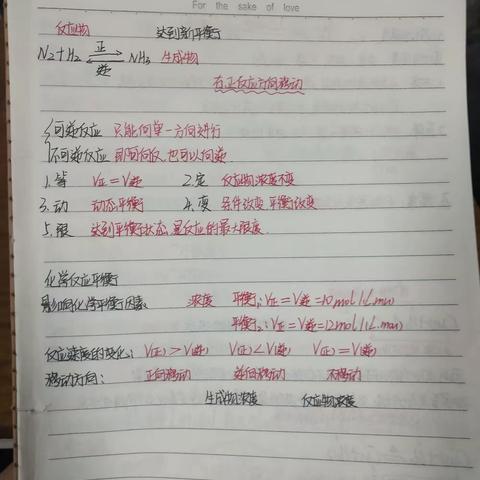 For the sake of love
反应物 达到新平衡
N2+H2 正 逆 NH3 生成物
右.正反应方向移动
可逆反应 只能向单一方向进行
不可逆反应 即可向仅,也可以向逆
1.等 V正=V逆 2.定 反应物浓度不变
3.动 动态平衡 4.变 条件改变 平衡改变
5.限 达到平衡状态,是反应的最大限度
化学反应平衡
影响化学平衡因素: 浓度 平衡1:V正=V逆=10mol/(L.min)
平衡2:V正=V逆=12mol/(L.min)
反应速度的变化: V(正)>V(逆) V(正)<V(逆) V(正)=V(逆)
移动方向: 正向移动 逆向移动 不移动
生成物浓度 反应物浓度